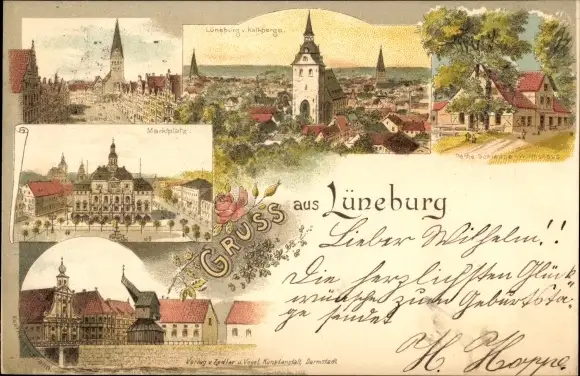 Lüneburg v. Kalkberge.
Marktplatz.
Gruss
aus Lüneburg
Lieber Wilhelm!!
Die herzlichsten Glück
wünsche zum Geburtsta-
ge sendet
H. Hoppe.
Verlag v. Zedler u. Vogel, Kunstanstalt, Darmstadt.